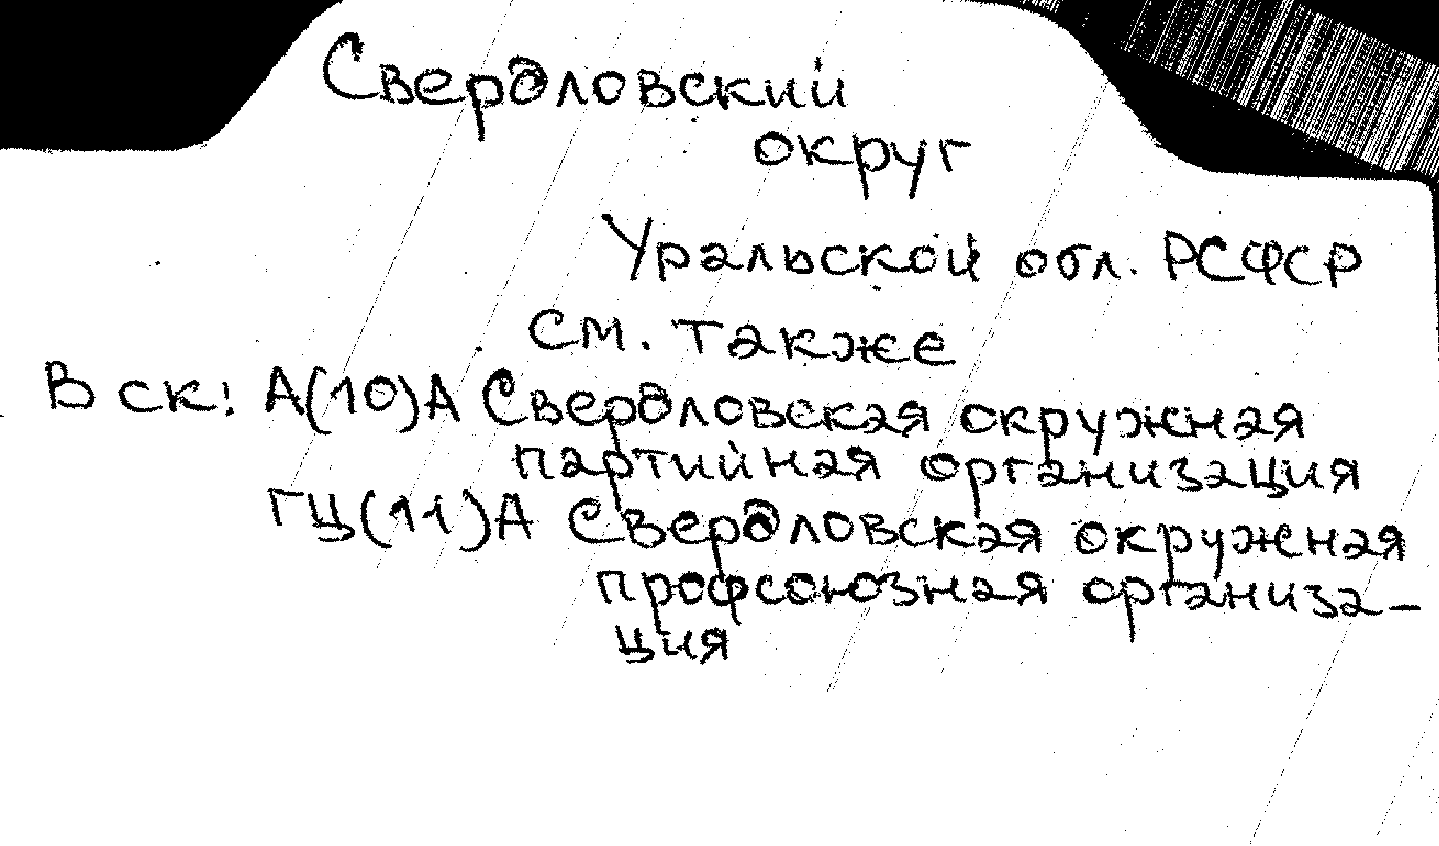 Свердловский
округ
Уральской обл. РСФСР
см. также
В ск! А(10)А Свердловская окружная
партийная организация
ГЦ(11)А Свердловская окружная
профсоюзная организа-
ция